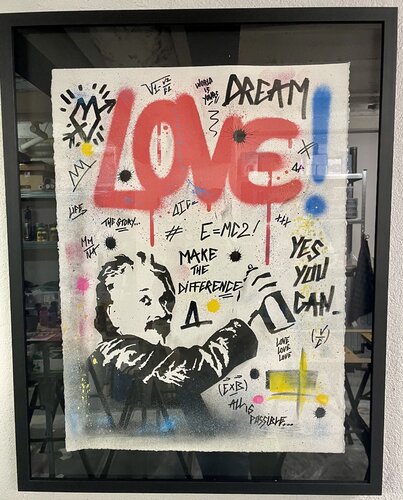 DREAM
WORLD
IS
YOURS
LOVE!
LIFE
THE STORY...
# E=MC2!
MAKE
THE
DIFFERENCE
YES
YOU
CAN.
LOVE
LOVE
LOVE
(ExB)
ALL IS
POSSIBLE...